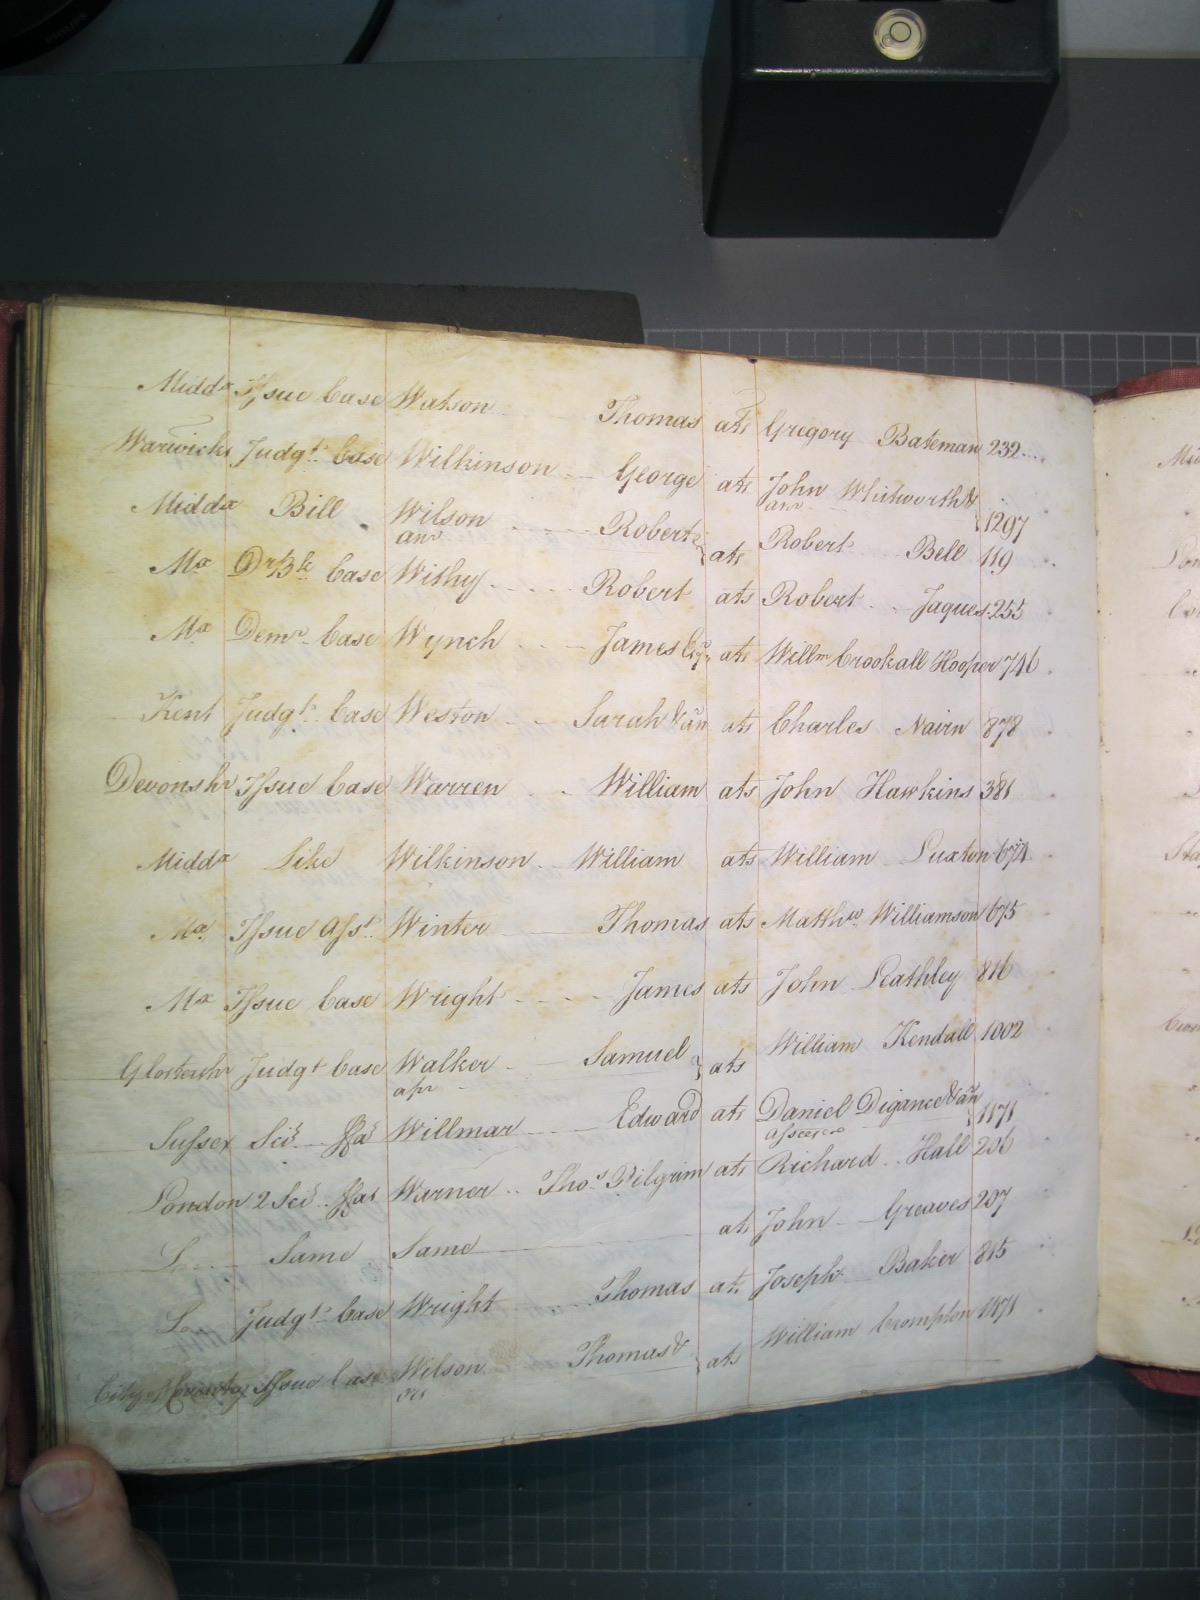 Middx Issue Case Watson Thomas ats Gregory Bateman 232
Warwicks Judgt. Case Wilkinson George ats John Whitworth &
anr 1297
Middx Bill Wilson Robert & ats Robert Bell 119
anr
Mx Dr Bk Case Withy Robert ats Robert Jaques 255
Mx Demr. Case Wynch James Esqr. ats Willm Crookall Hooper 746
Kent Judgt. Case Weston Sarah & an ats Charles Nairn 878
Devonshr Issue Case Warren William ats John Hawkins 381
Middx Like Wilkinson William ats William Luxton 674
Mx Issue Asst. Winter Thomas ats Matthw. Williamson 675
Mx Issue Case Wright James ats John Leathley 816
Glostershr Judgt Case Walker Samuel ats William Kendall 1002
Sussex Sci. ffas Willmar Edward ats Daniel Digance & an
assees 1171
London 2 Sci. ffas Warner Thos. Pilgrim ats Richard Hall 206
L Same Same ats John Greaves 207
Lo Judgt. Case Wright Thomas ats Joseph Baker 815
City Issue Case Wilson Thomas & ats William Crompton 1471
ors